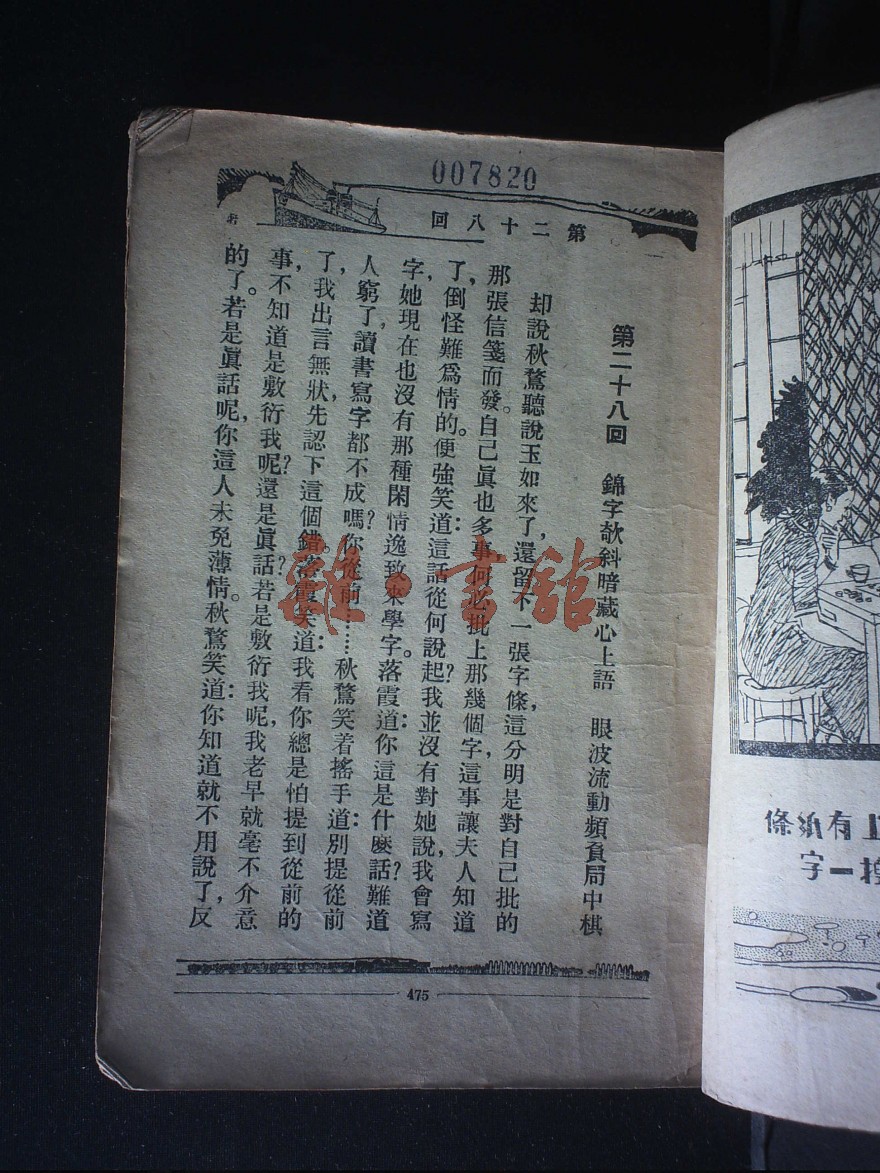 007820
第二十八回
第二十八回　錦字欹斜暗藏心上語　眼波流動頻負局中棋
却說秋鶩聽說玉如來了，還留下一張字條，這分明是對自己批的
那張信箋而發。自己眞也多事，何必批上那幾個字，這事讓夫人知道
了，倒怪難爲情的。便強笑道：這話從何說起？我並沒有對她說，我會寫
字，她現在也沒有那種閑情逸致來學字。落霞道：你這是什麽話？難道
人窮了，讀書寫字都不成嗎？你從前……秋鶩笑着搖手道：別提從前
了，我出言無狀，先認下這個錯。落霞笑道：我看你總是怕提到從前的
事，不知道是敷衍我呢？還是眞話？若是敷衍我呢，我老早就毫不介意
的了。若是眞話呢，你這人未免薄情。秋鶩笑道：你知道就不用說了，反
475
雜·書館
條紙有上
字一